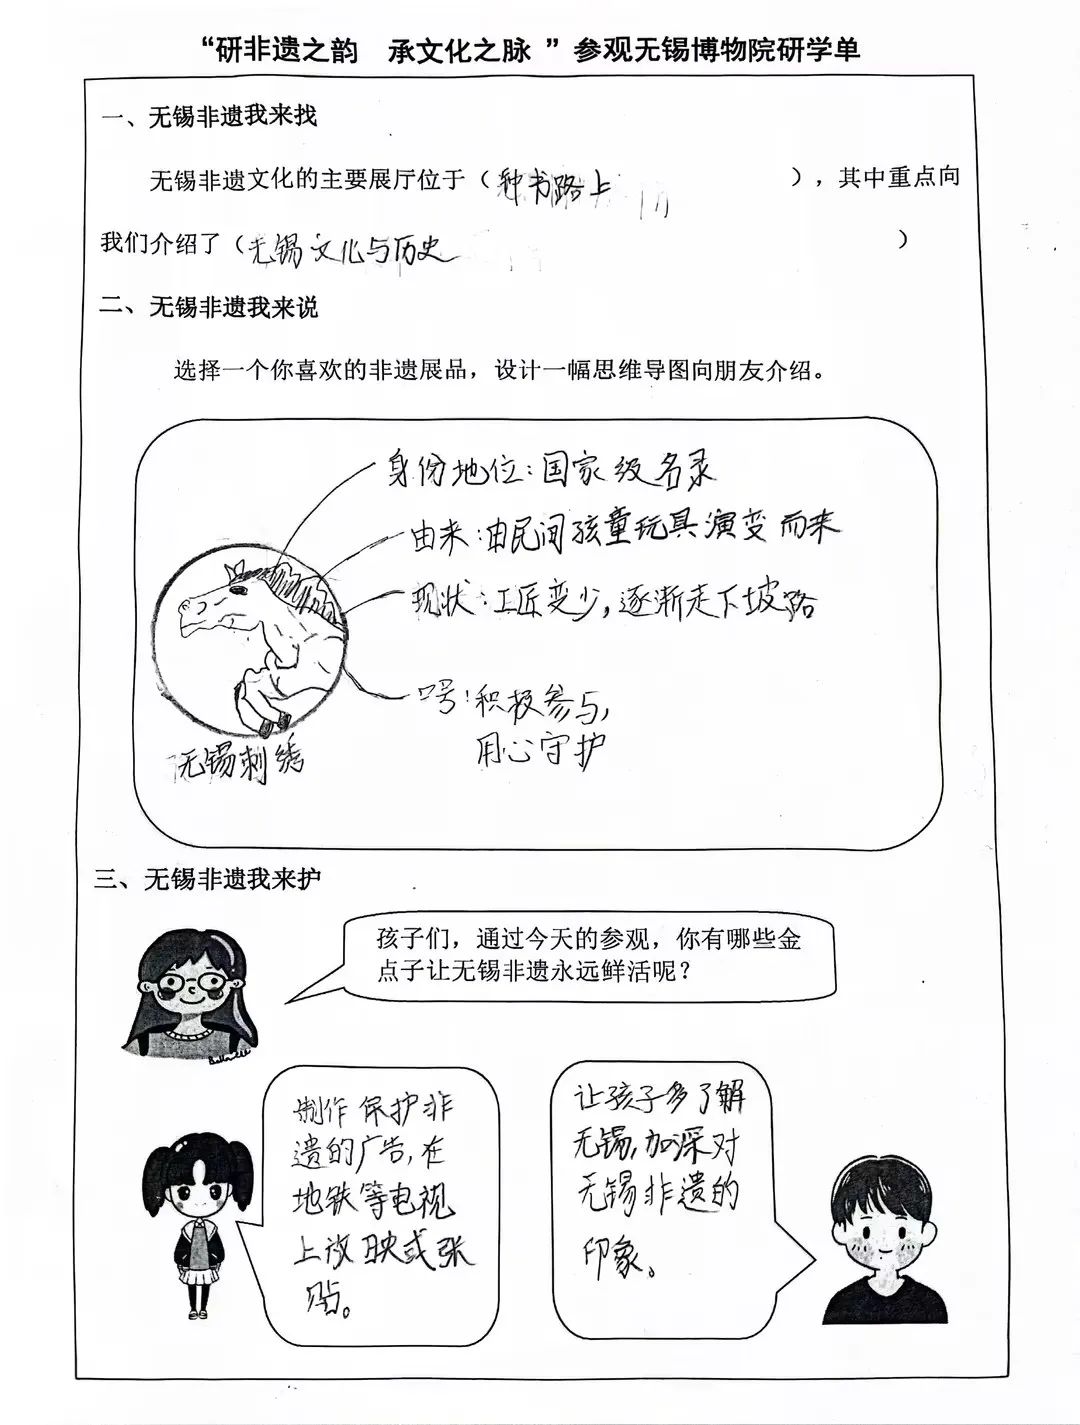 “研非遗之韵 承文化之脉 ”参观无锡博物院研学单
一、无锡非遗我来找
无锡非遗文化的主要展厅位于（种书路上），其中重点向
我们介绍了（无锡文化与历史）
二、无锡非遗我来说
选择一个你喜欢的非遗展品，设计一幅思维导图向朋友介绍。
身份地位：国家级名录
由来：由民间孩童玩具演变而来
现状：工匠变少，逐渐走下坡路
号：积极参与，
用心守护
无锡刺绣
三、无锡非遗我来护
孩子们，通过今天的参观，你有哪些金
点子让无锡非遗永远鲜活呢？
制作保护非
遗的广告，在
地铁等电视
上放映或张
贴。
让孩子多了解
无锡，加深对
无锡非遗的
印象。